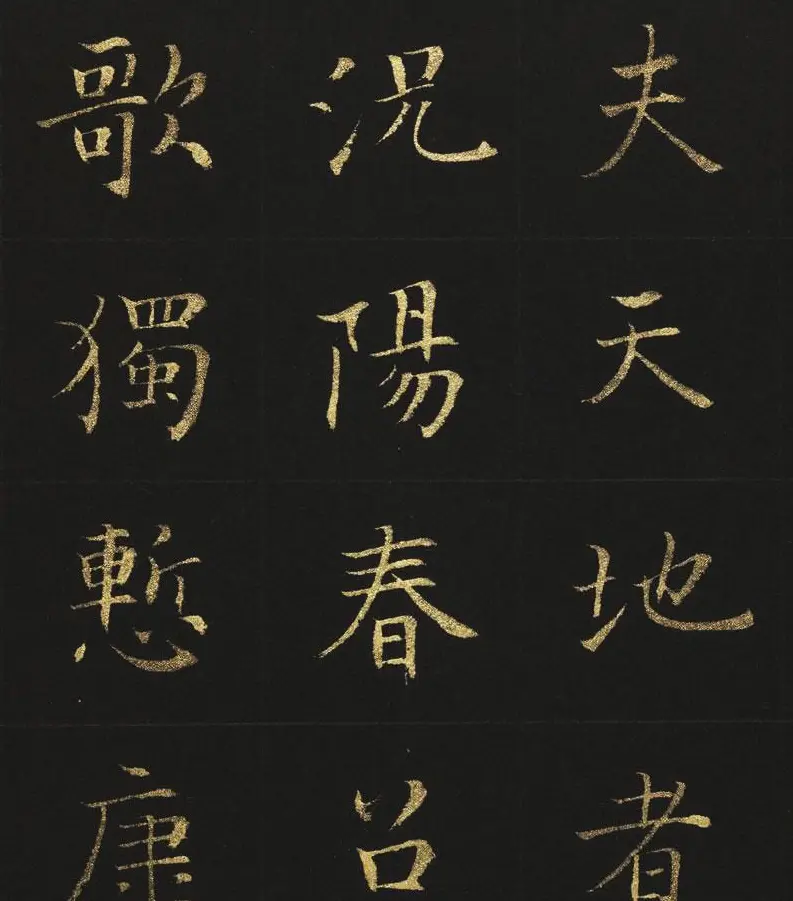 夫天地者
況陽春召
歌獨慙康